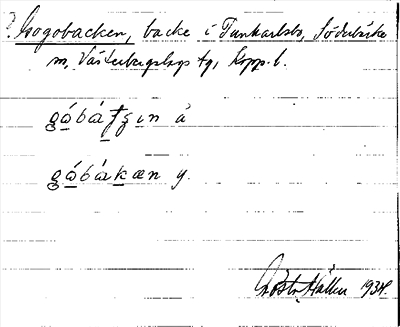 ? Gogobacken, backe i Tunkarlsbo, Söderbärke
sn, Västerbergslags tg, Kopp. l.
gòbátʒin ä
gòbárkæn y.
Gösta Hallen 1934.